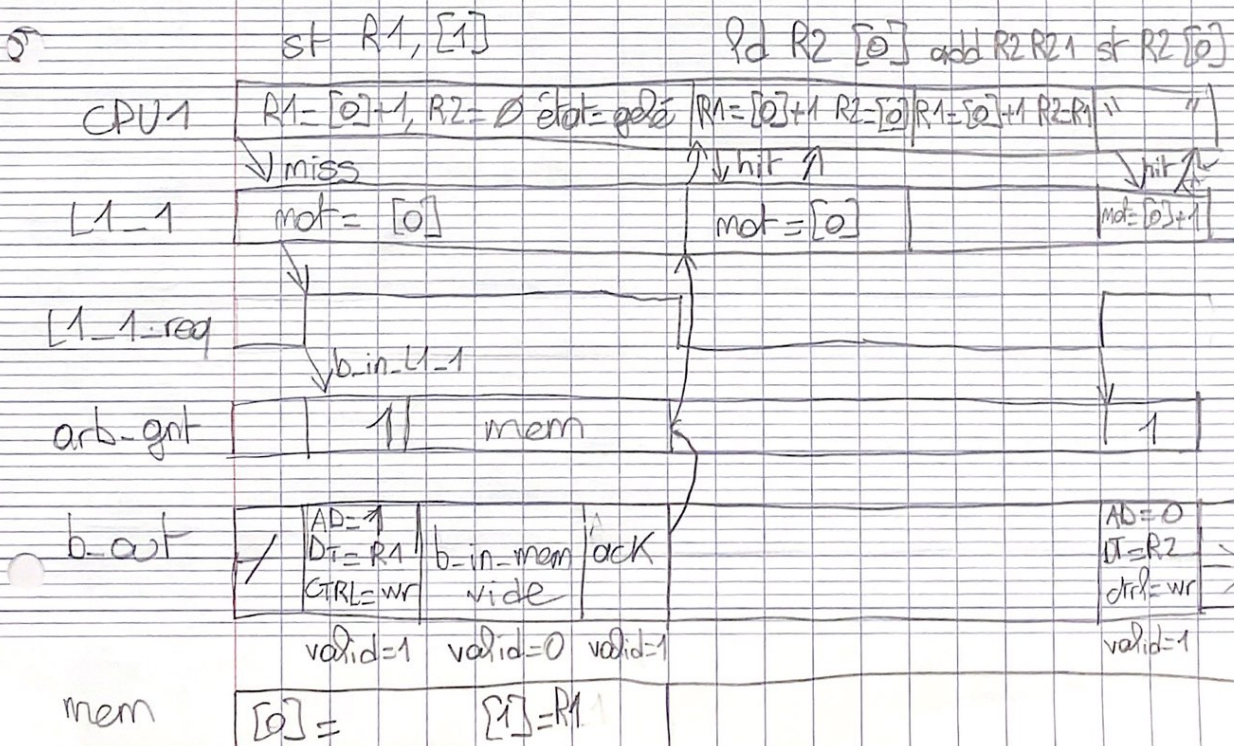 st R1, [1] ld R2 [0] add R2 R2 1 st R2 [0]
CPU1 R1=[0]+1, R2=0 état=gelé R1=[0]+1 R2=[0] R1=[0]+1 R2=R1 " "
miss hit hit
L1_1 mot= [0] mot=[0] mot=[0]+1
L1_1_req
b_in_L1_1
arb_gnt 1 mem 1
b_out / AD=1 DT=R1 CTRL=wr b_in_mem vide ack AD=0 DT=R2 ctrl=wr
valid=1 valid=0 valid=1 valid=1
mem [0]= [1]=R1